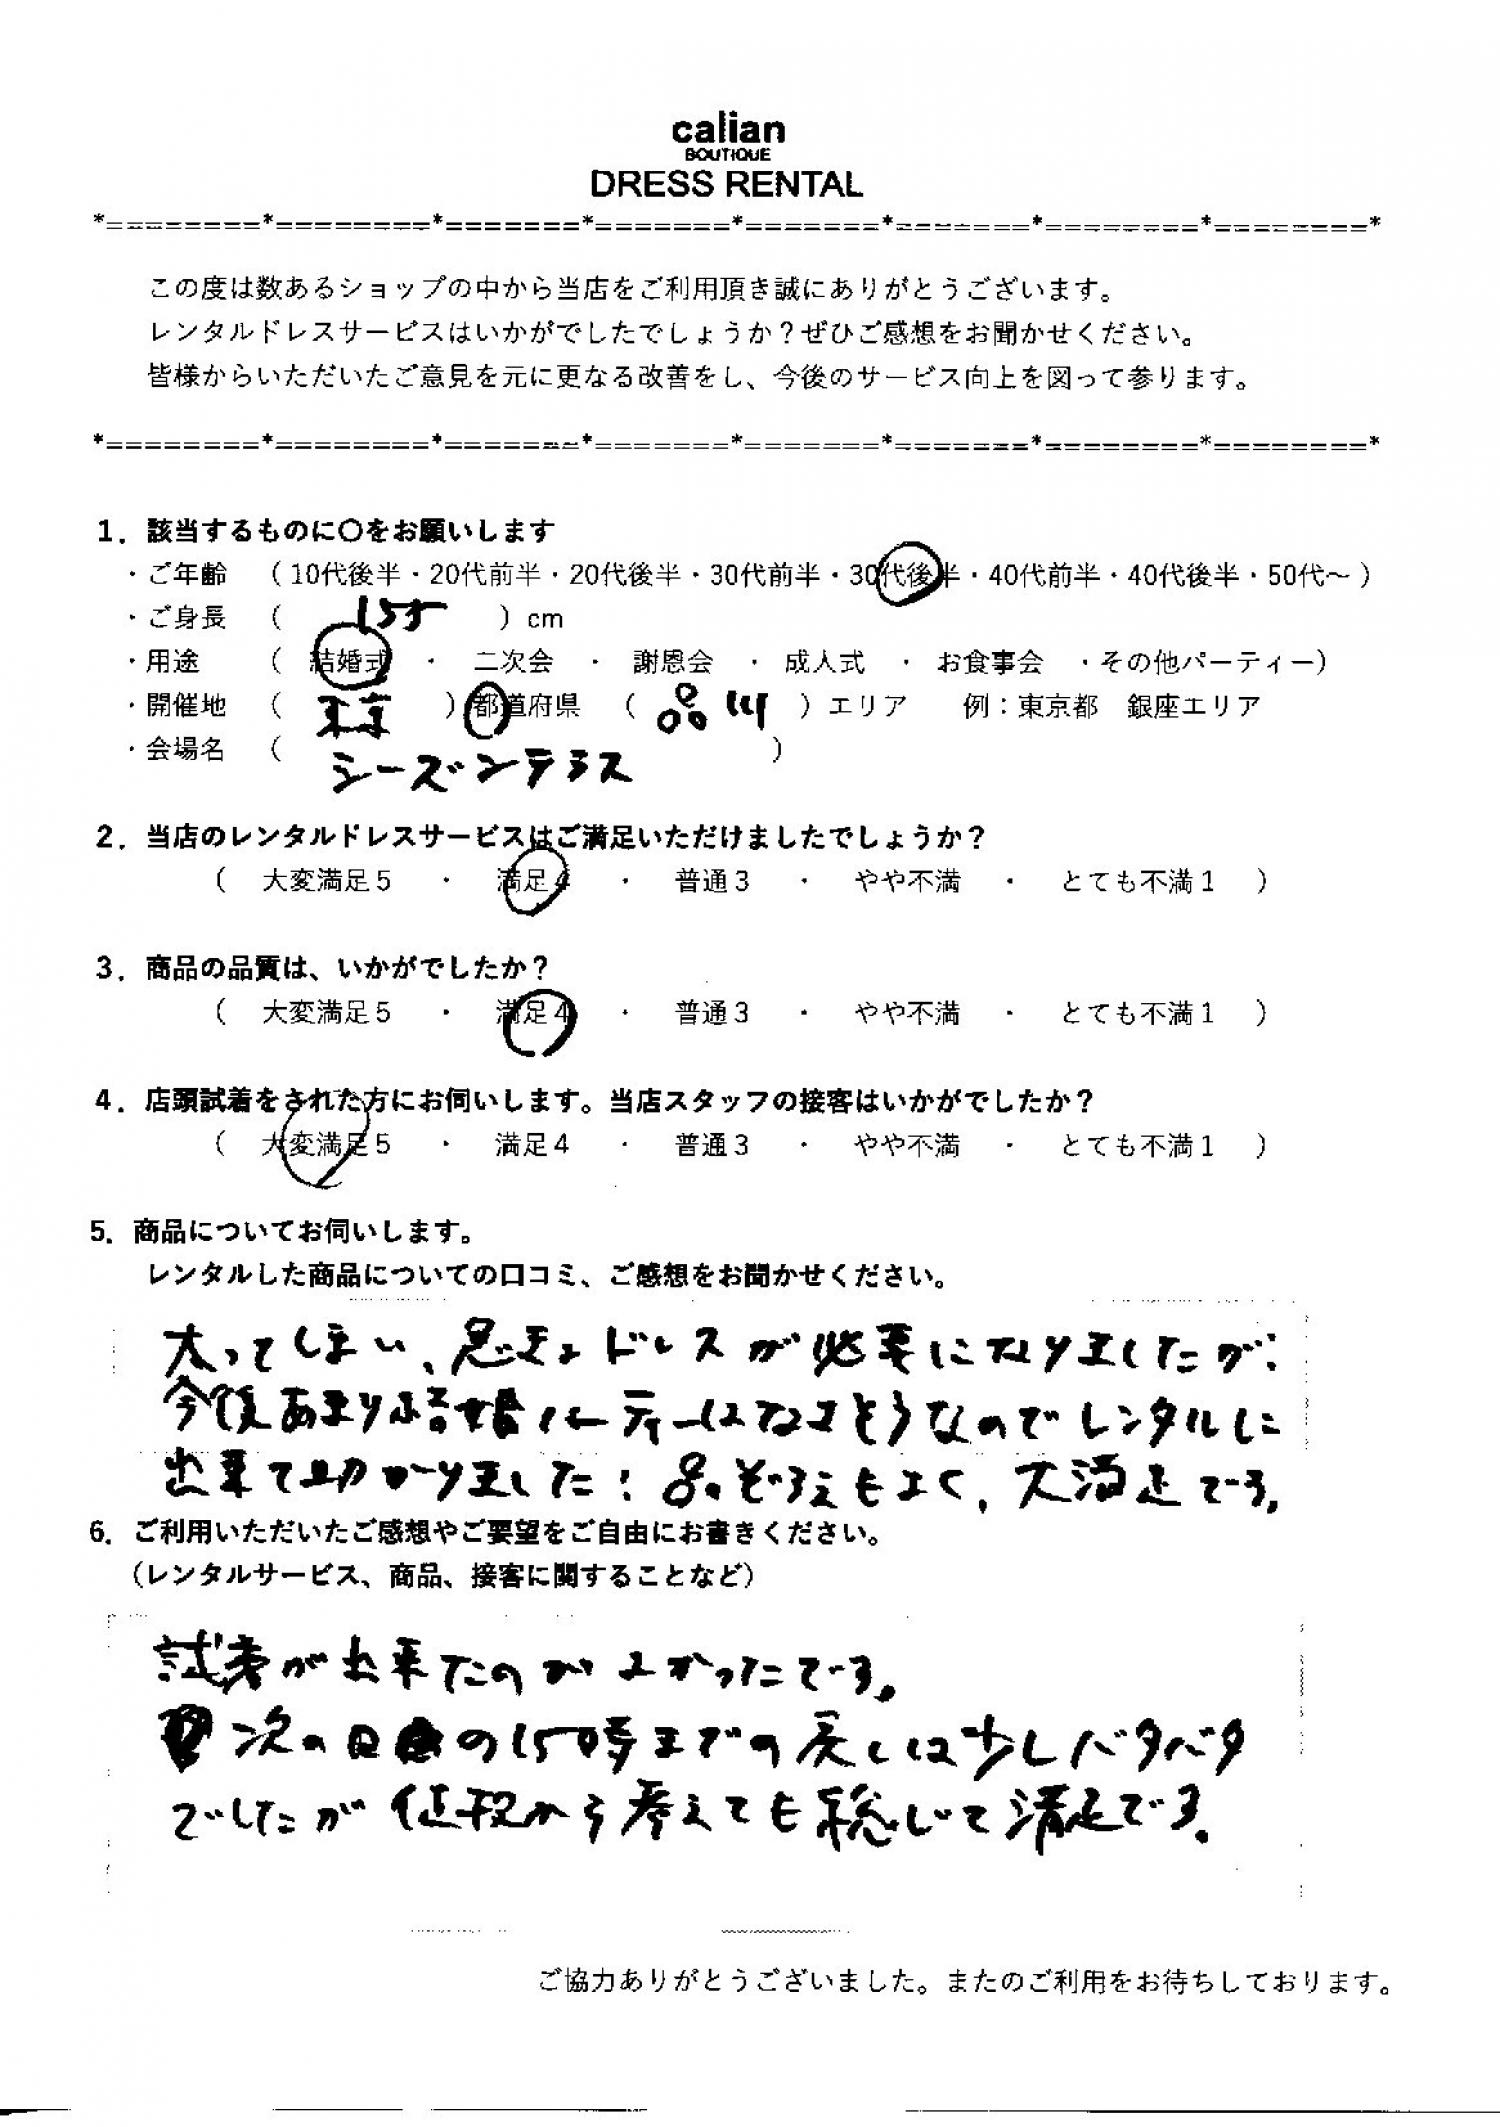 calian
BOUTIQUE
DRESS RENTAL
*========*========*=======*=======*=======*=======*========*========*
この度は数あるショップの中から当店をご利用頂き誠にありがとうございます。
レンタルドレスサービスはいかがでしたでしょうか？ぜひご感想をお聞かせください。
皆様からいただいたご意見を元に更なる改善をし、今後のサービス向上を図って参ります。
*========*========*=======*=======*=======*=======*========*========*
1．該当するものに〇をお願いします
・ご年齢 （ 10代後半・20代前半・20代後半・30代前半・30代後半・40代前半・40代後半・50代～ ）
・ご身長 （ 155 ）cm
・用途 （ 結婚式 ・ 二次会 ・ 謝恩会 ・ 成人式 ・ お食事会 ・その他パーティー）
・開催地 （ 東京 ）都道府県 （ 品川 ）エリア 例：東京都 銀座エリア
・会場名 （ シーズンテラス ）
2．当店のレンタルドレスサービスはご満足いただけましたでしょうか？
（ 大変満足５ ・ 満足４ ・ 普通３ ・ やや不満 ・ とても不満１ ）
3．商品の品質は、いかがでしたか？
（ 大変満足５ ・ 満足４ ・ 普通３ ・ やや不満 ・ とても不満１ ）
4．店頭試着をされた方にお伺いします。当店スタッフの接客はいかがでしたか？
（ 大変満足５ ・ 満足４ ・ 普通３ ・ やや不満 ・ とても不満１ ）
5．商品についてお伺いします。
レンタルした商品についての口コミ、ご感想をお聞かせください。
太ってしまい、急きょドレスが必要になりましたが、
今後あまり結婚パーティーはなさそうなのでレンタルに
出来て助かりました！品ぞろえもよく、大満足です。
6．ご利用いただいたご感想やご要望をご自由にお書きください。
（レンタルサービス、商品、接客に関することなど）
試着が出来たのがよかったです。
次の日の15時までの戻しは少しバタバタ
でしたが値段から考えても総じて満足です。
ご協力ありがとうございました。またのご利用をお待ちしております。